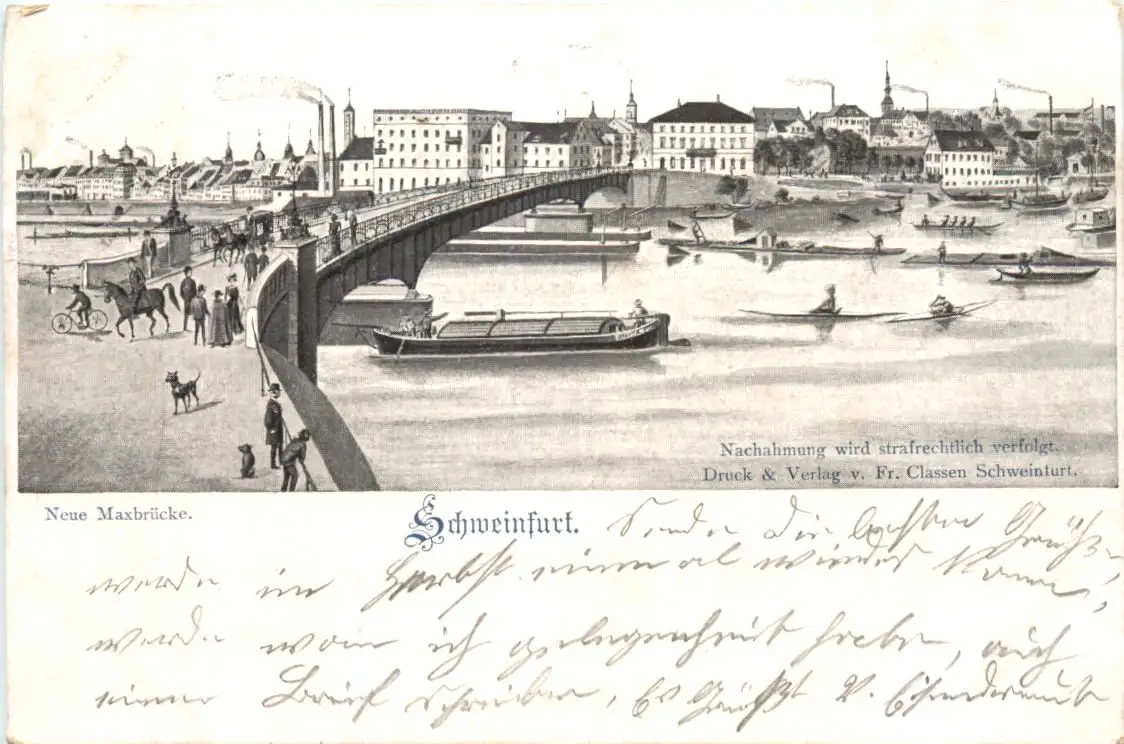 Nachahmung wird strafrechtlich verfolgt.
Druck & Verlag v. Fr. Classen Schweinfurt.
Neue Maxbrücke.
Schweinfurt.
Sende Dir die besten Grüße,
werde im Herbst einmal wieder kommen,
werde wen ich gelegenheit habe, auch
einen Brief schreiben, Es Grüßt